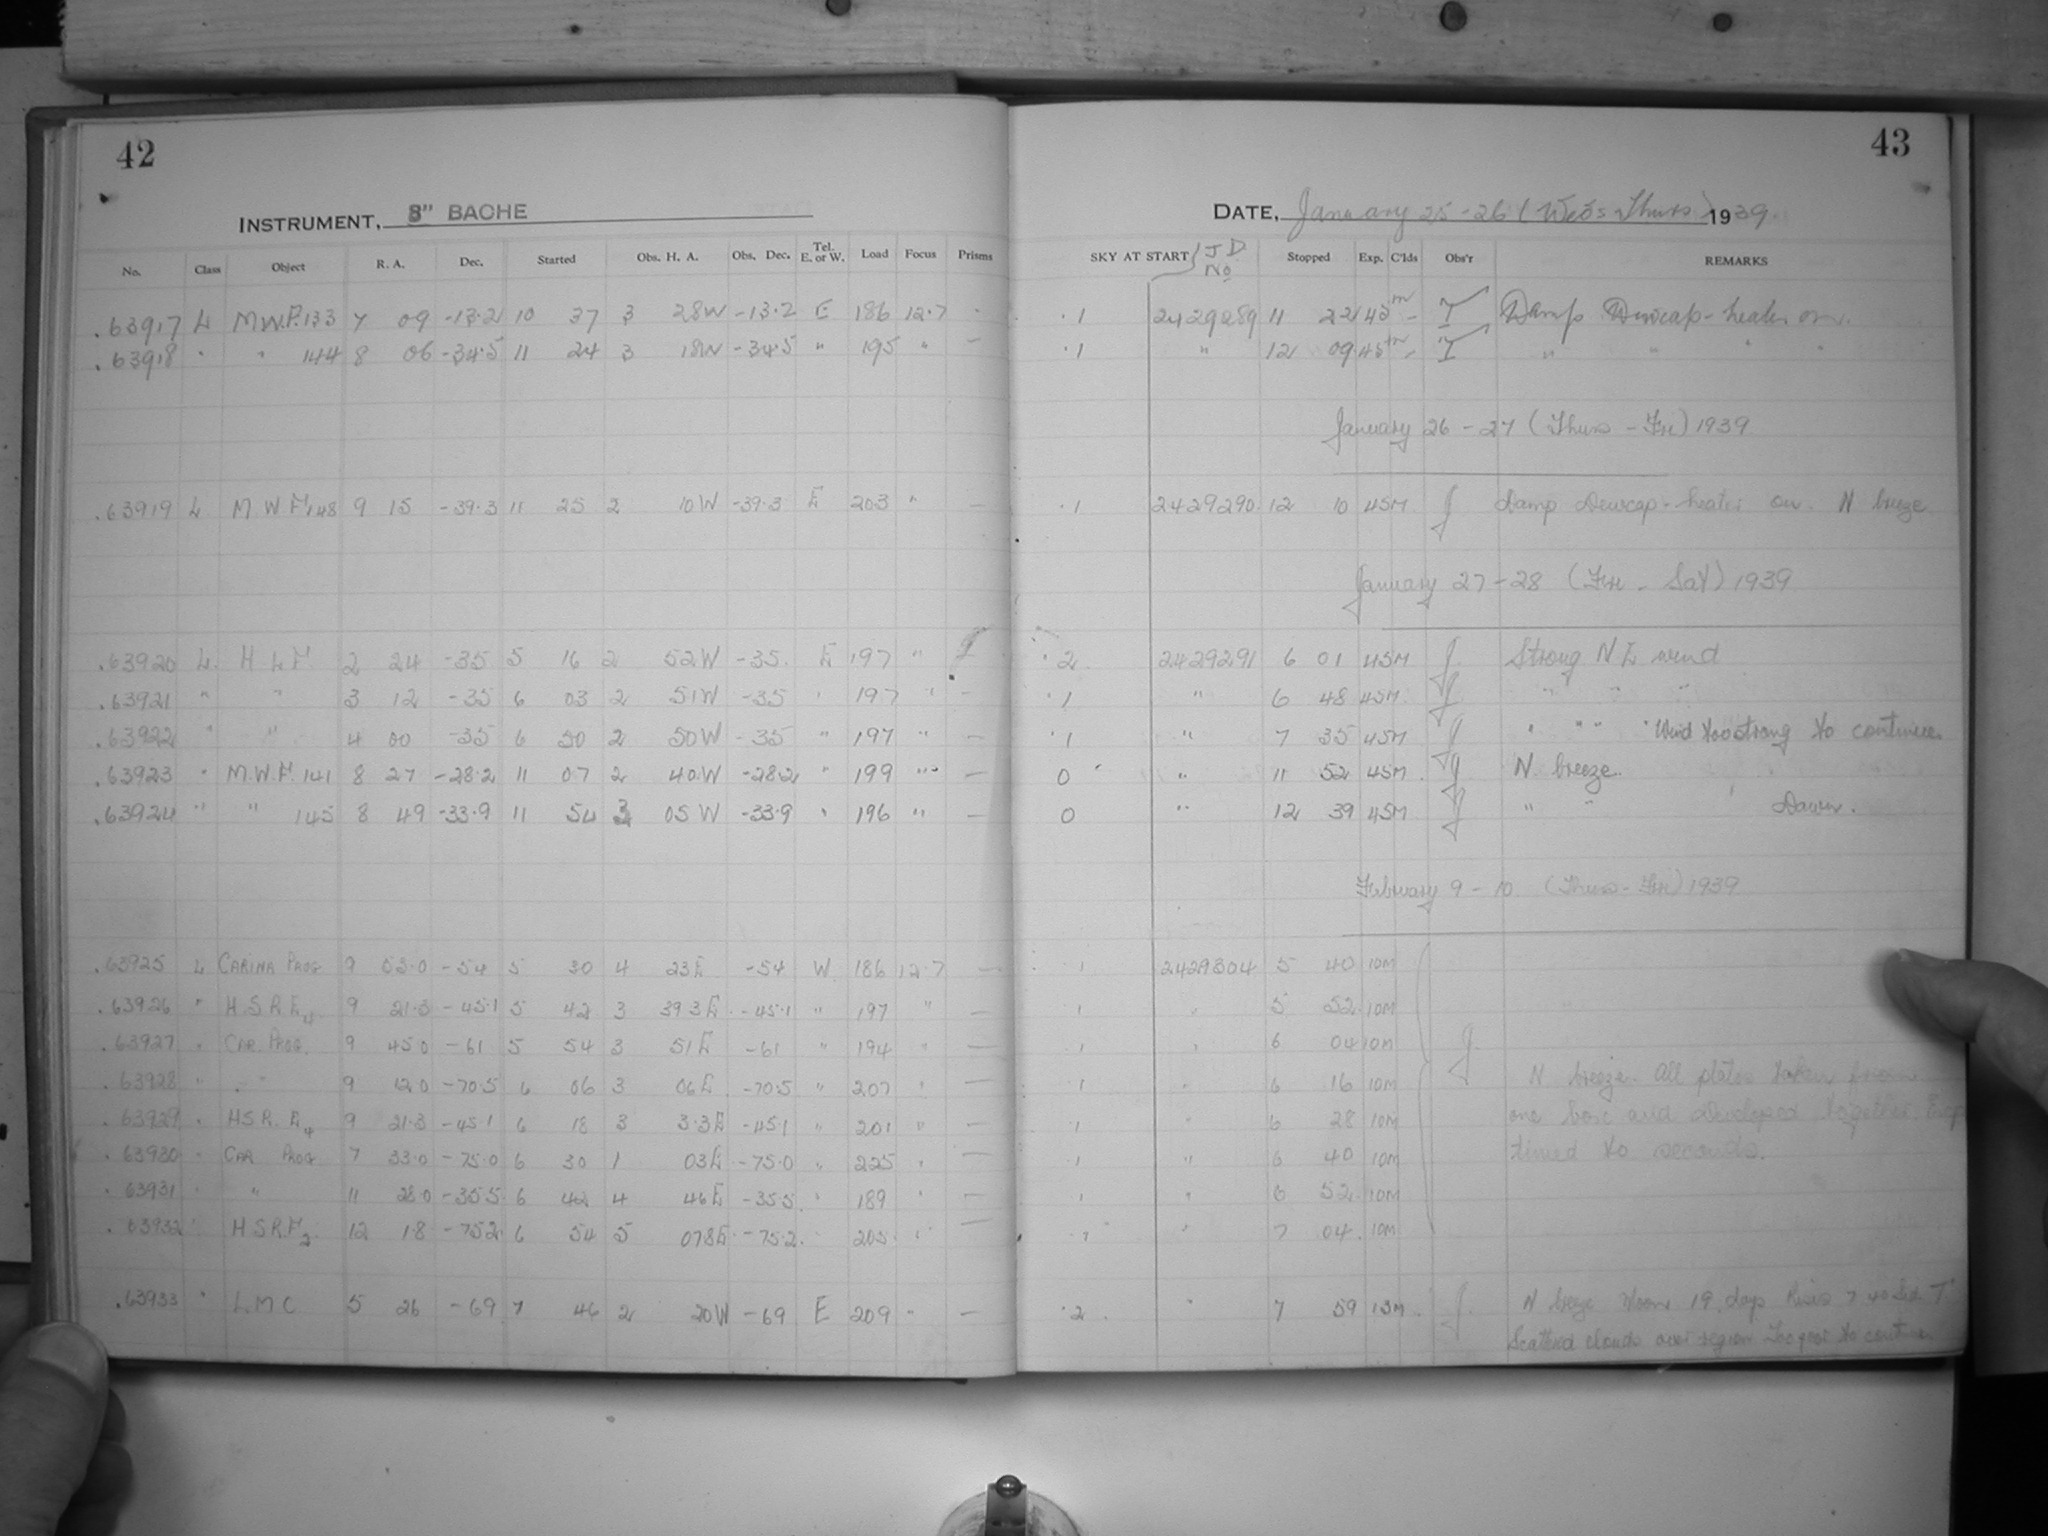 42
43
INSTRUMENT, 8" BACHE
DATE, January 25-26 (Wed-Thurs) 1939
No. Class Object R. A. Dec. Started Obs. H. A. Obs. Dec. Tel. E. or W. Load Focus Prisms SKY AT START J D No Stopped Exp. C'lds Obs'r REMARKS
.63917 L M.W.F.133 7 09 -13.2 10 37 3 28W -13.2 E 186 12.7 - .1 2429289 11 22 45m - T Damp Dewcap-heater on.
.63918 " " 144 8 06 -34.5 11 24 3 18W -34.5 " 195 " - .1 " 12 09 45m - T " " " "
January 26-27 (Thurs-Fri) 1939
.63919 L M.W.F.148 9 15 -39.3 11 25 2 10W -39.3 E 203 " - .1 2429290 12 10 45M J Damp Dewcap-heater on. N breeze
January 27-28 (Fri-Sat) 1939
.63920 L. H L F. 2 24 -35 5 16 2 52W -35. E 197 " - .2 2429291 6 01 45M J. Strong N E wind
.63921 " " 3 12 -35 6 03 2 51W -35 " 197 " - .1 " 6 48 45M. J " " "
.63922 " " 4 00 -35 6 50 2 50W -35 " 197 " - .1 " 7 35 45M J " " " " Wind too strong to continue.
.63923 " M.W.F. 141 8 27 -28.2 11 07 2 40W -28.2 " 199 " - 0 " 11 52 45M. J N. breeze.
.63924 " " 145 8 49 -33.9 11 54 3 05W -33.9 " 196 " - 0 " 12 39 45M J " " Dawn.
February 9-10 (Thurs-Fri) 1939
.63925 L CARINA PROG 9 03.0 -54 5 30 4 23E -54 W 186 12.7 - .1 2429304 5 40 10M
.63926 " H.S.R.E4 9 21.3 -45.1 5 42 3 39.3E -45.1 " 197 " - .1 " 5 52 10M
.63927 " CAR. PROG. 9 45.0 -61 5 54 3 51E -61 " 194 " - .1 " 6 04 10M J.
.63928 " " 9 12.0 -70.5 6 06 3 06E -70.5 " 207 " - .1 " 6 16 10M N breeze. All plates taken from
.63929 " H.S.R. E4 9 21.3 -45.1 6 18 3 3.3E -45.1 " 201 " - .1 " 6 28 10M one box and developed together. Exp
.63930 " CAR PROG 7 33.0 -75.0 6 30 1 03E -75.0 " 225 " - .1 " 6 40 10M timed to seconds.
.63931 " " 11 28.0 -35.5 6 42 4 46E -35.5 " 189 " - .1 " 6 52 10M
.63932 " H.S.R.F2 12 1.8 -75.2 6 54 5 07.8E -75.2 " 205 " - .1 " 7 04 10M
.63933 " L.M.C 5 26 -69 7 46 2 20W -69 E 209 " - .2 " 7 59 13M J. N breeze Moon 19 days Rises 7 40 Sid. T
Scattered clouds over region Too poor to continue